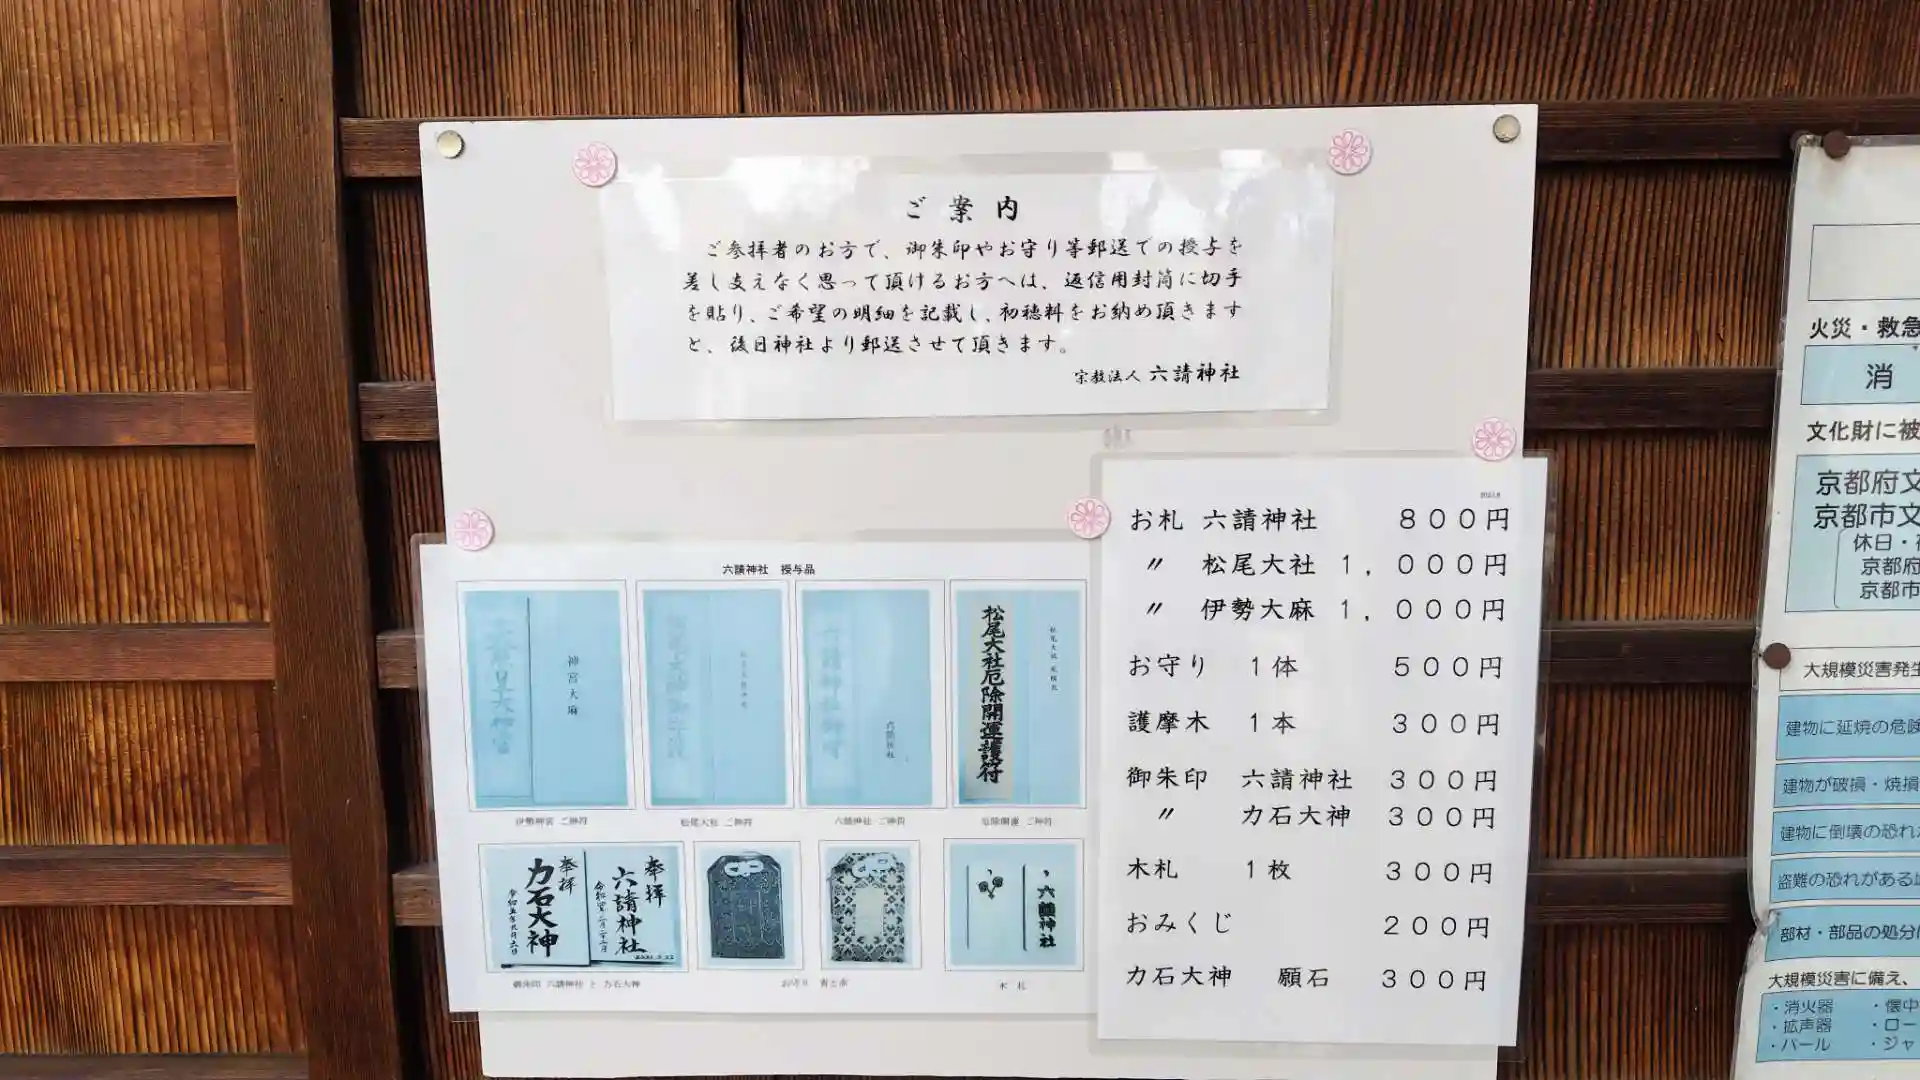 ご案内
ご参拝者のお方で、御朱印やお守り等郵送での授与を
差し支えなく思って頂けるお方へは、返信用封筒に切手
を貼り、ご希望の明細を記載し、初穂料をお納め頂きます
と、後日神社より郵送させて頂きます。
宗教法人 六請神社
六請神社 授与品
神宮大麻
松尾大社厄除開運護符
伊勢神宮 ご神符
松尾大社 ご神符
六請神社 ご神符
厄除開運 ご神符
奉拝
力石大神
奉拝
六請神社
六請神社
御朱印 六請神社 と 力石大神
お守り 青と赤
木 札
お札 六請神社 800円
〃 松尾大社 1,000円
〃 伊勢大麻 1,000円
お守り 1体 500円
護摩木 1本 300円
御朱印 六請神社 300円
〃 力石大神 300円
木札 1枚 300円
おみくじ 200円
力石大神 願石 300円
火災・救急
消
文化財に被
京都府文
京都市文
休日・
京都府
京都市
大規模災害発生
建物に延焼の危険
建物が破損・焼損
建物に倒壊の恐れ
盗難の恐れがある
部材・部品の処分
大規模災害に備え、
・消火器 ・懐中
・拡声器 ・ロー
・バール ・ジャ